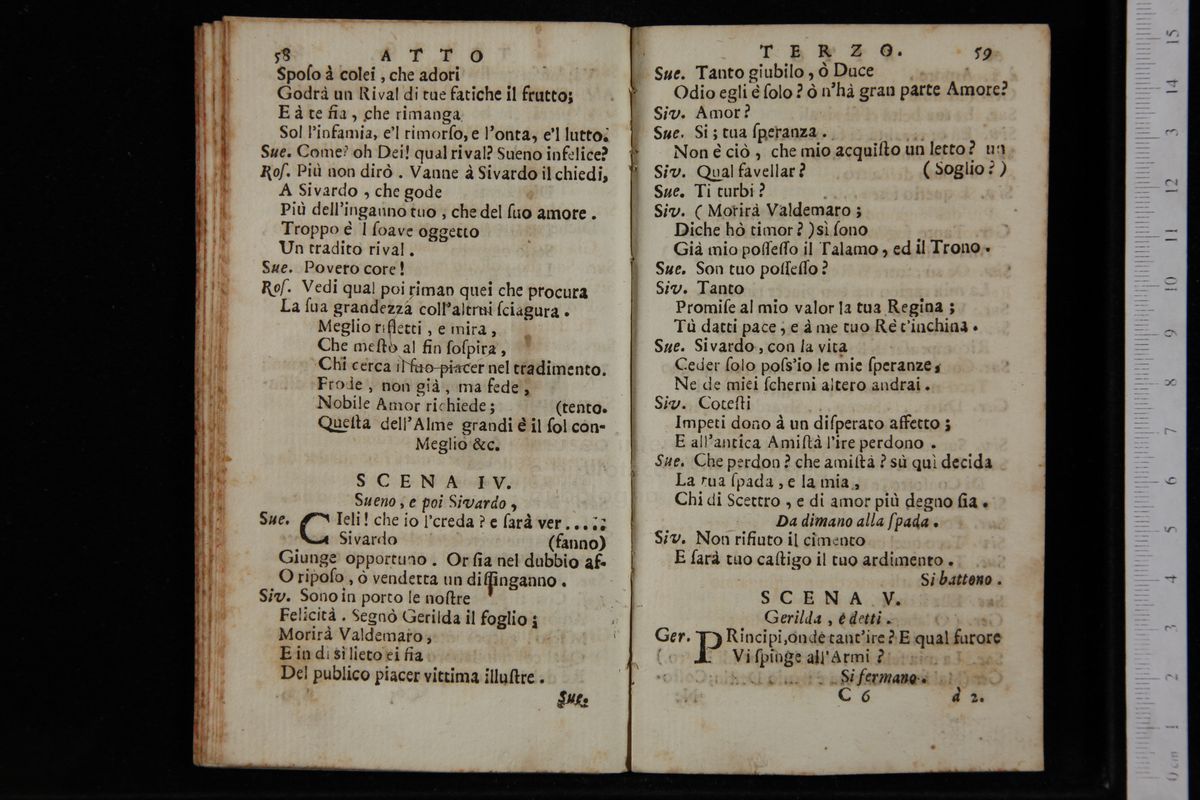 58 ATTO
Spoſo à colei, che adori
Godrà un Rival di tue fatiche il frutto;
E à te fia, che rimanga
Sol l'infamia, e'l rimorſo, e l'onta, e'l lutto.
Sue. Come? oh Dei! qual rival? Sueno infelice?
Roſ. Più non dirò. Vanne à Sivardo il chiedi,
A Sivardo, che gode
Più dell'inganno tuo, che del ſuo amore.
Troppo è 'l ſoave oggetto
Un tradito rival.
Sue. Povero core!
Roſ. Vedi qual poi riman quei che procura
La ſua grandezzá coll'altrui ſciagura.
Meglio rifletti, e mira,
Che meſto al fin ſoſpira,
Chi cerca il ſuo piacer nel tradimento.
Frode, non già, ma fede,
Nobile Amor richiede; (tento.
Queſta dell'Alme grandi è il ſol con-
Meglio &c.
SCENA IV.
Sueno, e poi Sivardo,
Sue. CIeli! che io l'creda? e ſarà ver.....;
Sivardo (fanno)
Giunge opportuno. Or ſia nel dubbio af-
O ripoſo, ò vendetta un diſinganno.
Siv. Sono in porto le noſtre
Felicità. Segnò Gerilda il foglio;
Morirà Valdemaro,
E in dì sì lieto ei fia
Del publico piacer vittima illuſtre.
Sue.
TERZO. 59
Sue. Tanto giubilo, ò Duce
Odio egli è ſolo? ò n'hà gran parte Amore?
Siv. Amor?
Sue. Si; tua ſperanza.
Non è ciò, che mio acquiſto un letto? un
Siv. Qual favellar? (Soglio?)
Sue. Ti turbi?
Siv. (Morirà Valdemaro;
Di che hò timor?) sì ſono
Già mio poſſeſſo il Talamo, ed il Trono.
Sue. Son tuo poſſeſſo?
Siv. Tanto
Promiſe al mio valor la tua Regina;
Tù datti pace, e à me tuo Rè t'inchina.
Sue. Sivardo, con la vita
Ceder ſolo poſs'io le mie ſperanze,
Ne de miei ſcherni altero andrai.
Siv. Coteſti
Impeti dono à un diſperato affetto;
E all'antica Amiſtà l'ire perdono.
Sue. Che perdon? che amiſtà? sù quì decida
La tua ſpada, e la mia,
Chi di Scettro, e di amor più degno ſia.
Da dimano alla ſpada.
Siv. Non rifiuto il cimento
E ſarà tuo caſtigo il tuo ardimento.
Si battono.
SCENA V.
Gerilda, e detti.
Ger. PRincipi, onde tant'ire? E qual furore
Vi ſpinge all'Armi?
Si fermano.
C 6 à 2.
0 cm 1 2 3 4 5 6 7 8 9 10 11 12 13 14 15